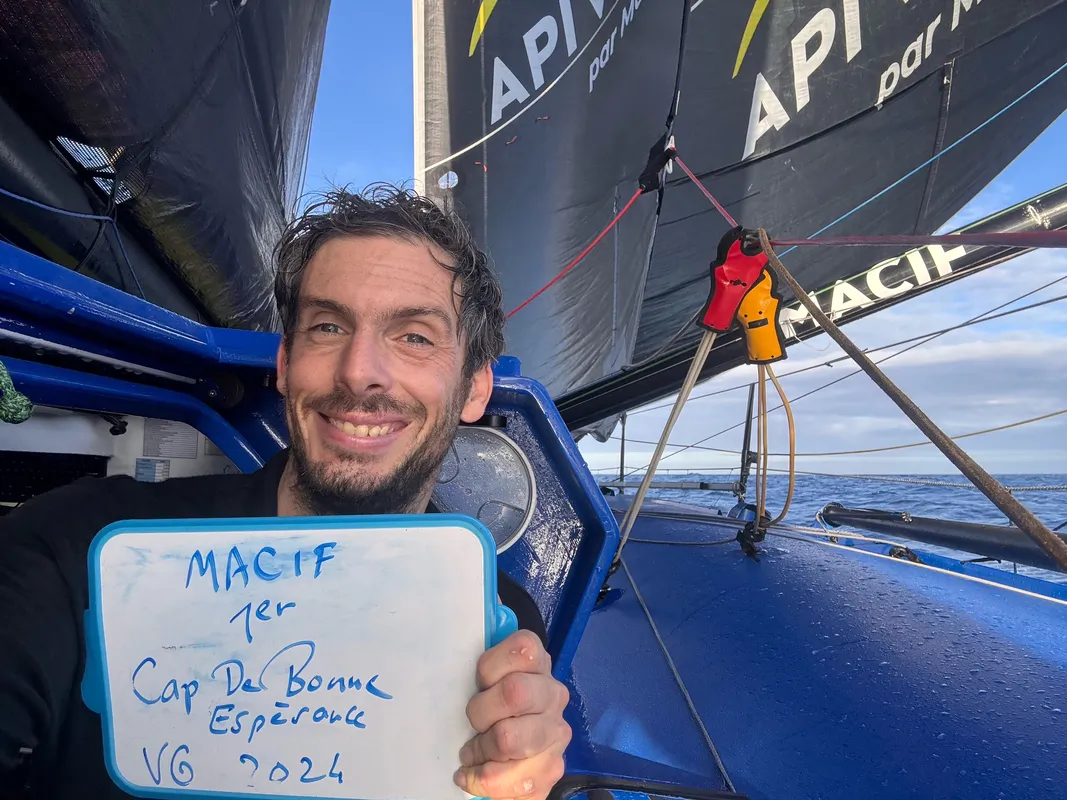 APIV
par Ma
APIV
par M
MACIF
MACIF
1er
Cap De Bonne
Espérance
VG 2024